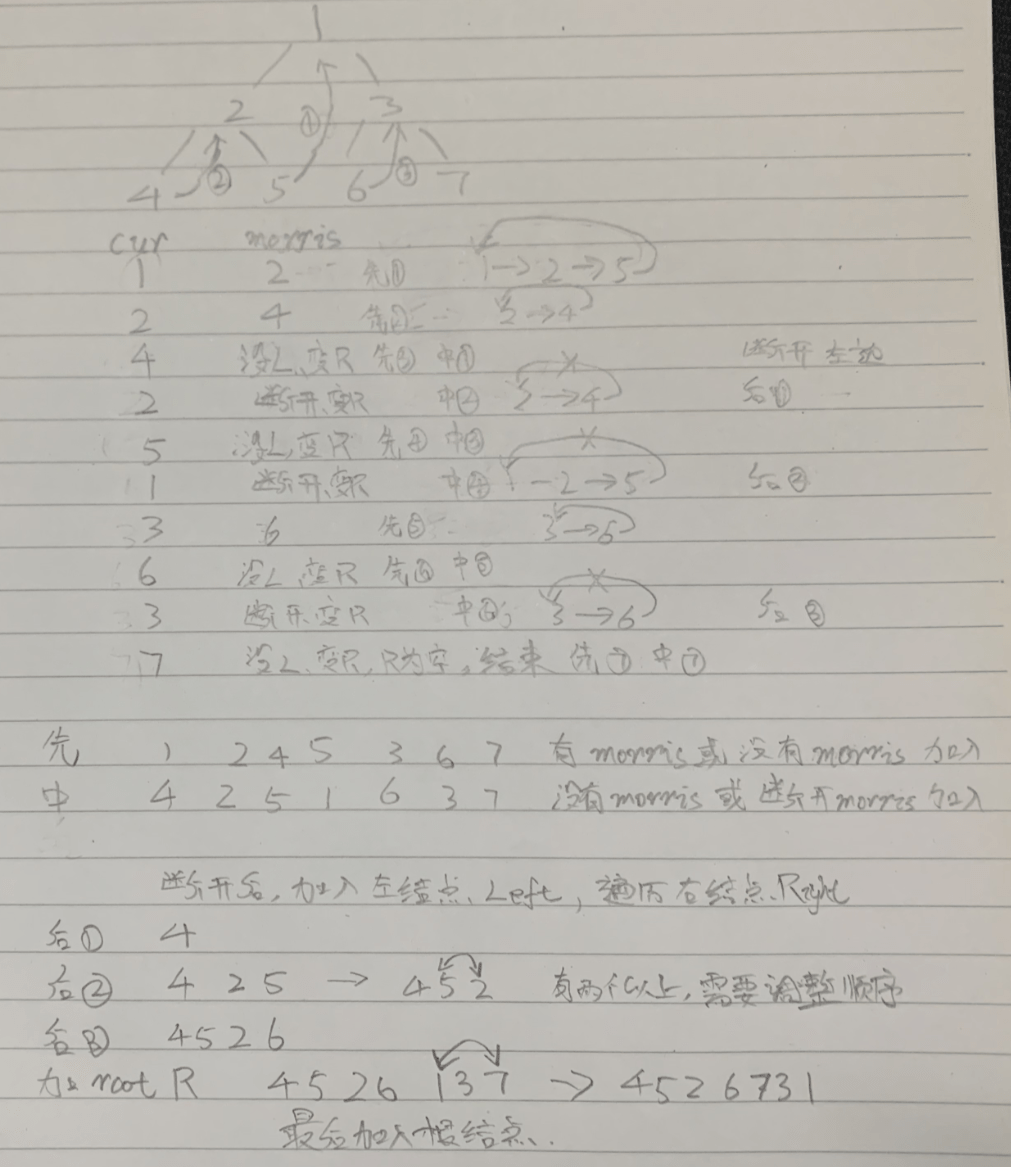 1
2 ① 3
4 ② 5 6 ③ 7
cur morris
1 2 先① 1→2→5
2 4 先② 2→4
4 没L,变R 先③ 中① 断开左边
2 断开,变R 中② 2→4 后①
5 没L,变R 先④ 中③
1 断开,变R 中④ 1-2→5 后②
3 6 先⑤ 3→6
6 没L,变R 先⑥ 中⑤
3 断开,变R 中⑥ 3→6 后③
7 没L,变R,R为空,结束 先⑦ 中⑦
先 1 2 4 5 3 6 7 有morris或没有morris加入
中 4 2 5 1 6 3 7 没有morris或断开morris加入
断开后,加入左结点Left,遍历右结点Right
后① 4
后② 4 2 5 → 4 5 2 有两个以上,需要调整顺序
后③ 4 5 2 6
加入root R 4 5 2 6 1 3 7 → 4 5 2 6 7 3 1
最后加入根结点.